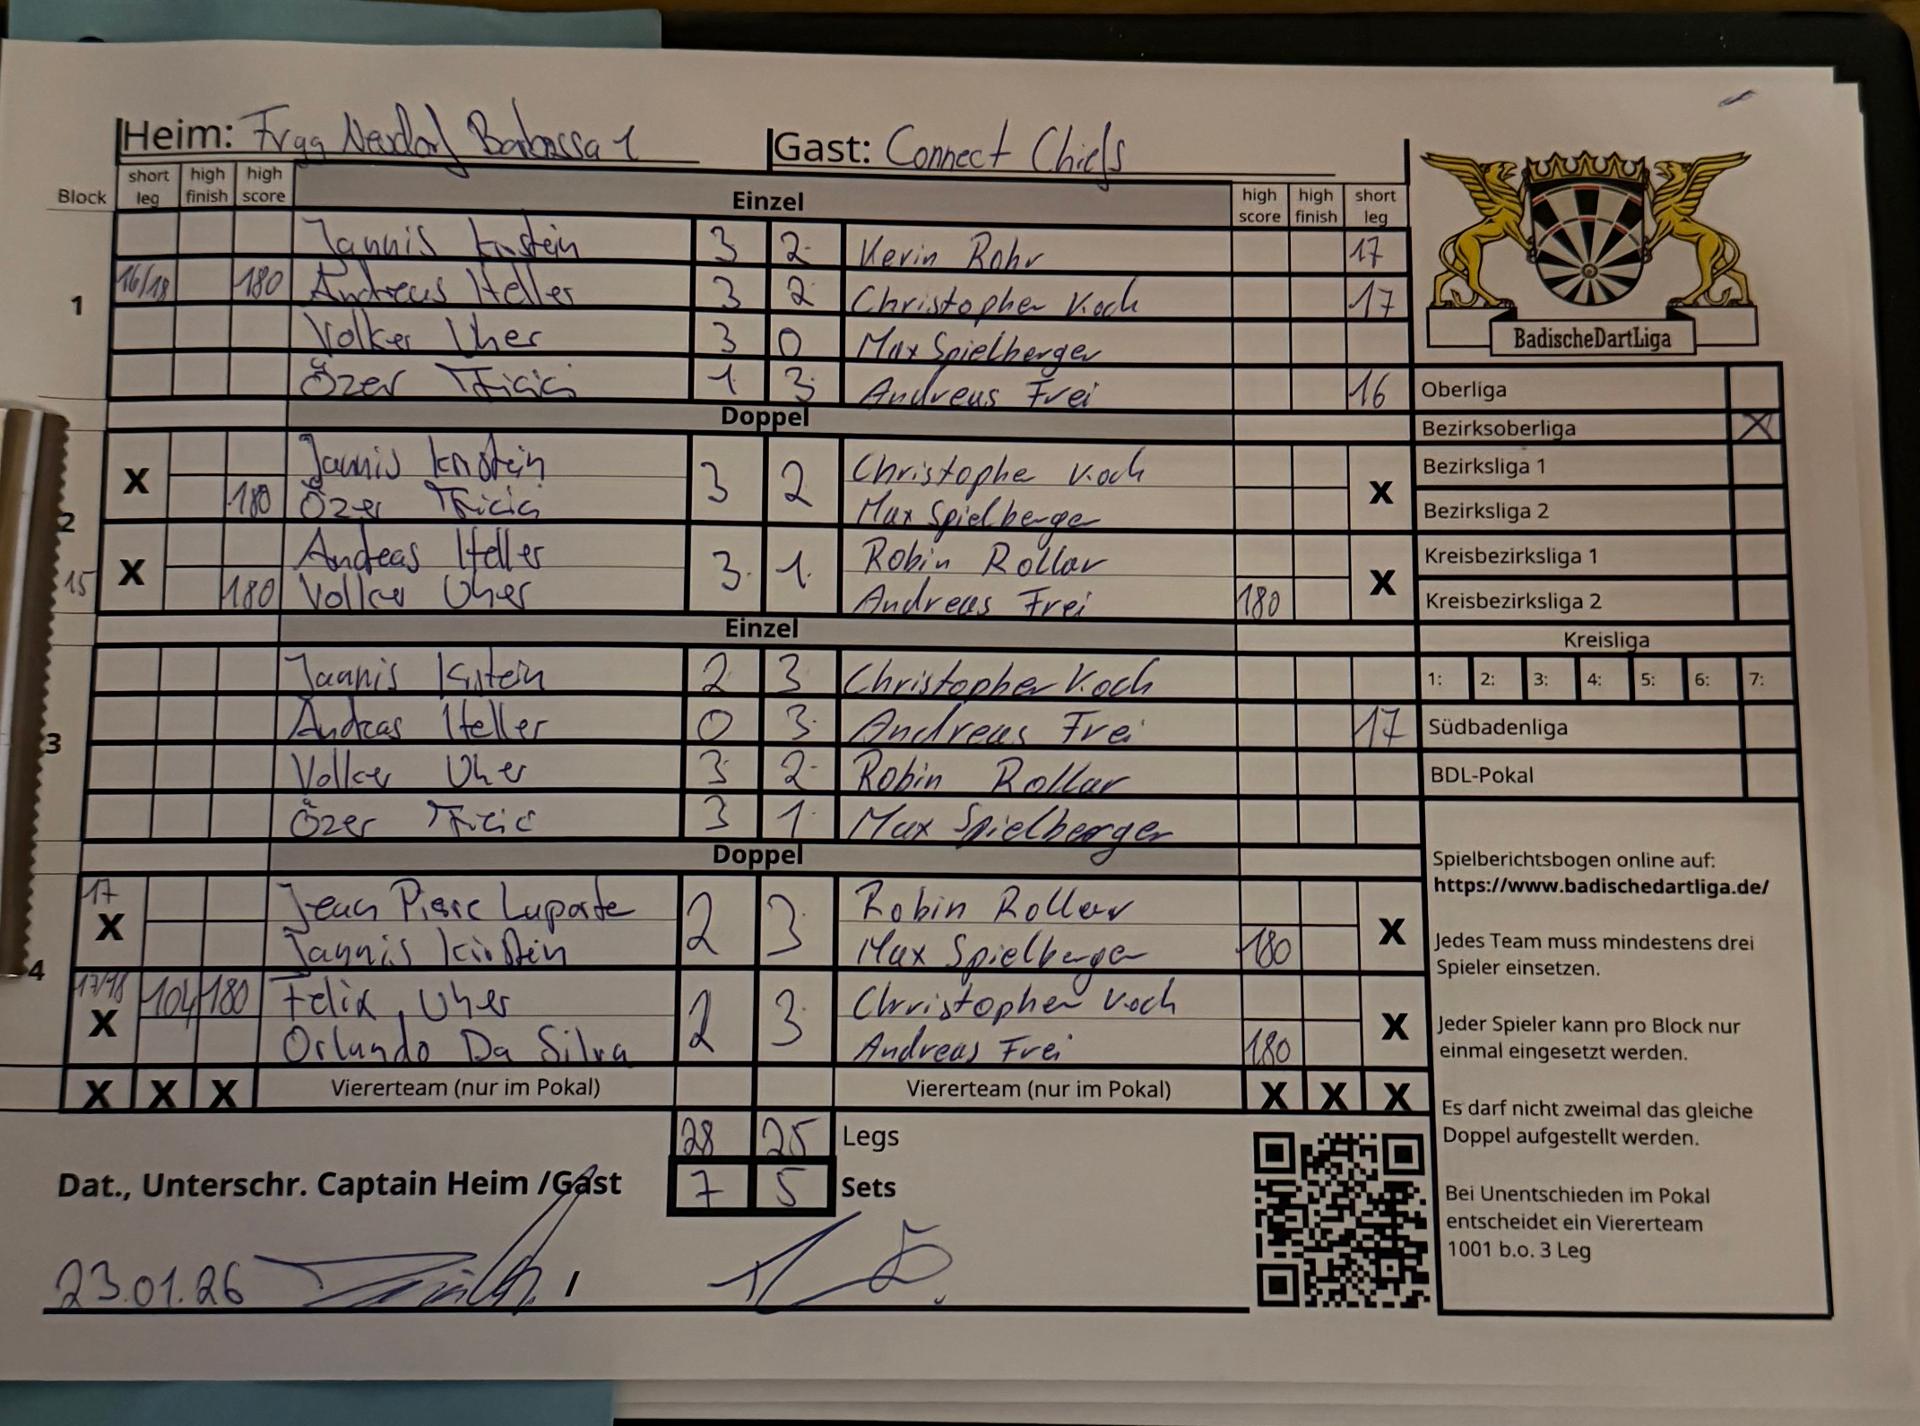 Heim: Frgg Neudorf Barbossa 1 Gast: Connect Chiefs
Block short leg high finish high score Einzel high score high finish short leg
1
Jannis Kirstein 3 2 Kevin Rohr 17
16/18 180 Andreas Heller 3 2 Christopher Koch 17
Volker Uher 3 0 Max Spielberger
Özer 1 3 Andreas Frei 16
Doppel
2
X Jannis Kirstein 3 2 Christopher Koch X
180 Özer Max Spielberger
15 X Andreas Heller 3 1 Robin Rollar X
180 Volker Uher Andreas Frei 180
Einzel
3
Jannis Kirstein 2 3 Christopher Koch
Andreas Heller 0 3 Andreas Frei 17
Volker Uher 3 2 Robin Rollar
Özer 3 1 Max Spielberger
Doppel
4
17 X Jean Pierre Laporte 2 3 Robin Rollar X
Jannis Kirstein Max Spielberger 180
17/18 X 104 180 Felix Uher 2 3 Christopher Koch X
Orlando Da Silva Andreas Frei 180
X X X Viererteam (nur im Pokal) Viererteam (nur im Pokal) X X X
28 25 Legs
7 5 Sets
Dat., Unterschr. Captain Heim /Gast
23.01.26 /
BadischeDartLiga
Oberliga
Bezirksoberliga X
Bezirksliga 1
Bezirksliga 2
Kreisbezirksliga 1
Kreisbezirksliga 2
Kreisliga
1: 2: 3: 4: 5: 6: 7:
Südbadenliga
BDL-Pokal
Spielberichtsbogen online auf:
https://www.badischedartliga.de/
Jedes Team muss mindestens drei
Spieler einsetzen.
Jeder Spieler kann pro Block nur
einmal eingesetzt werden.
Es darf nicht zweimal das gleiche
Doppel aufgestellt werden.
Bei Unentschieden im Pokal
entscheidet ein Viererteam
1001 b.o. 3 Leg